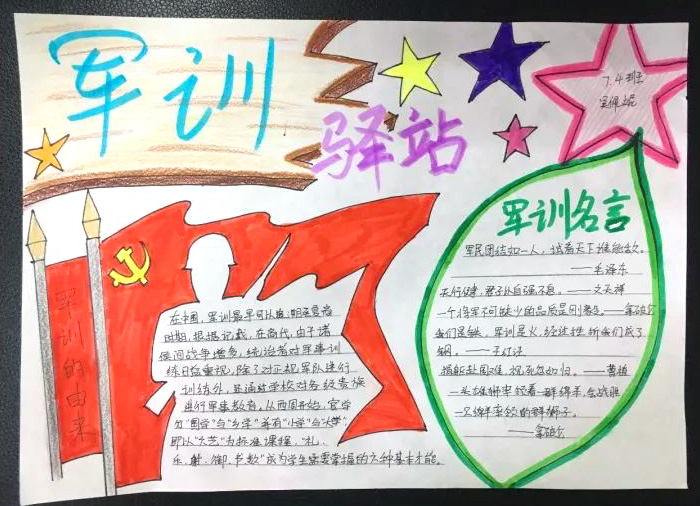 军训
驿站
7.4班
军训的由来
在中国，军训最早可以追溯至夏商
时期，根据记载，在商代，由于诸
侯间战争增多，统治者对军事训
练日益重视，除了对正规军队进行
训练外，还通过学校对各级贵族
进行军事教育，从西周开始，官学
分"国学"与"乡学"并有"小学"与"大学"
即以"六艺"为标准课程，"礼、
乐、射、御、书、数"成为学生需要掌握的六种基本才能。
军训名言
军民团结如一人，试看天下谁能敌。
——毛泽东
天行健，君子以自强不息。——文天祥
一个将军不可缺少的品质是刚毅。——拿破仑
我们是铁，军训是火，经过挫折我们成了
钢。
捐躯赴国难，视死忽如归。——曹植
一头雄狮率领着一群绵羊，会战胜
一只绵羊率领的群狮子。
——拿破仑